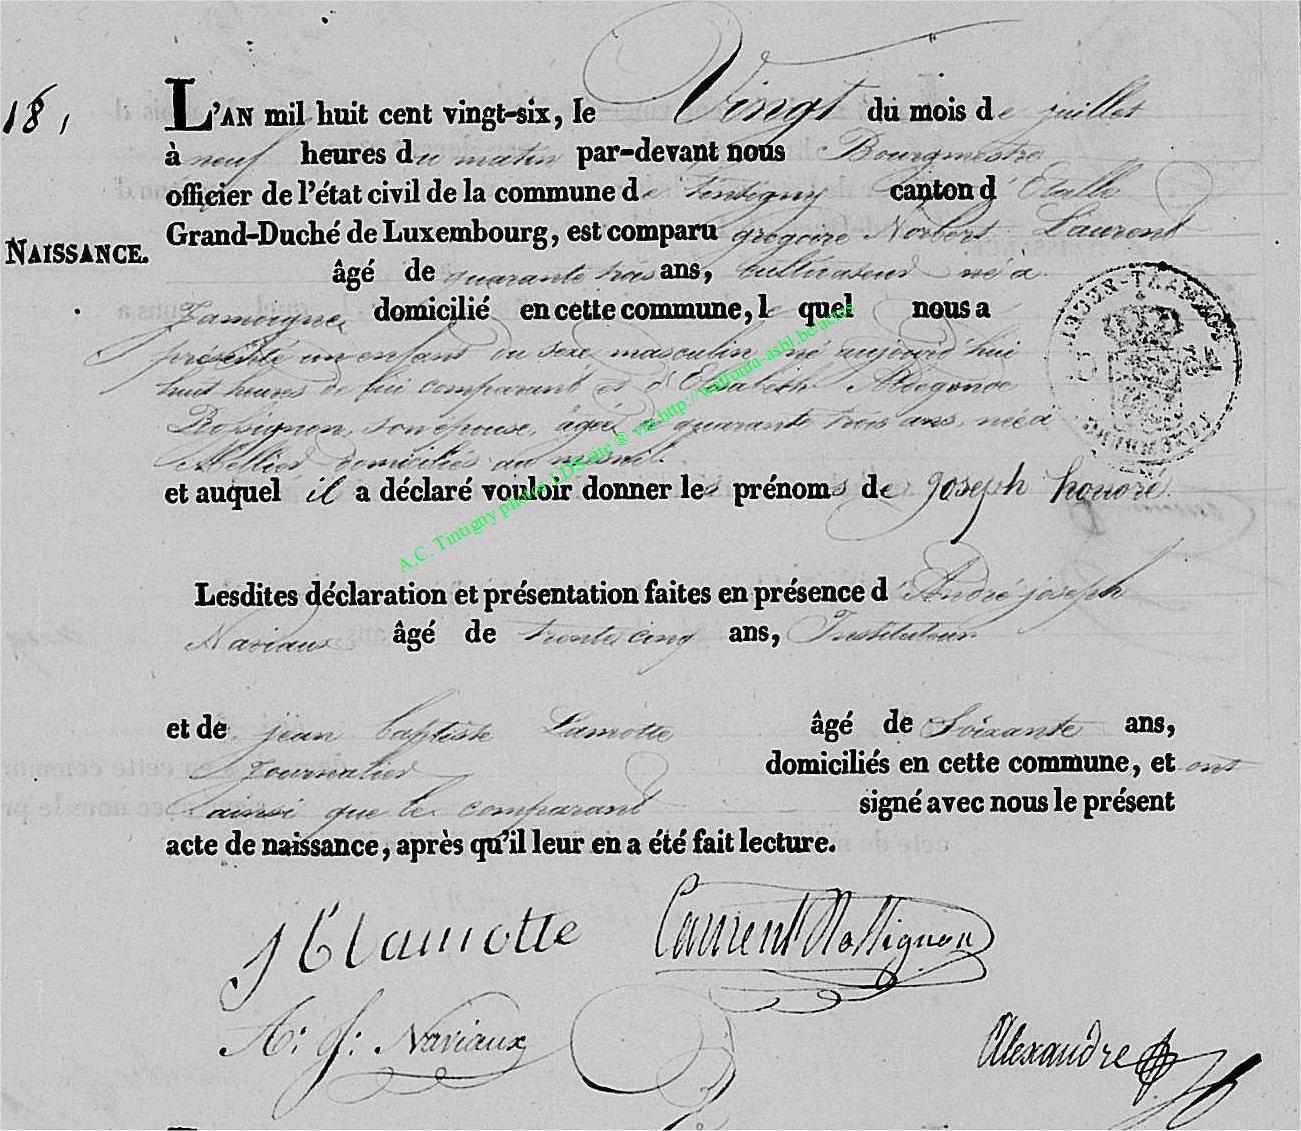 18,
NAISSANCE.
L'AN mil huit cent vingt-six, le Vingt du mois de juillet
à neuf heures du matin par-devant nous Bourgmestre
officier de l'état civil de la commune de tintigny canton d'Etalle
Grand-Duché de Luxembourg, est comparu gregoire Norbert Laurent
âgé de quarante trois ans, cultivateur né à
Jamoigne domicilié en cette commune, le quel nous a
présenté un enfant du sexe masculin né aujourd'hui
huit heures de lui comparant et d'Elisabeth Aldegonde
Rosignon, son épouse, âgée de quarante trois ans, née à
Mellier domiciliés au mesnil.
et auquel il a déclaré vouloir donner les prénoms de joseph honoré.
Lesdites déclaration et présentation faites en présence d'André joseph
Naviaux âgé de trente cinq ans, Instituteur
et de jean baptiste Lamotte âgé de Soixante ans,
Journalier domiciliés en cette commune, et ont
ainsi que le comparant signé avec nous le présent
acte de naissance, après qu'il leur en a été fait lecture.
J B Lamotte Laurent Rossignon
A: J: Naviaux
Alexandre
A.C. Tintigny photos LDS site ® via http://wallonia-asbl.be/actes